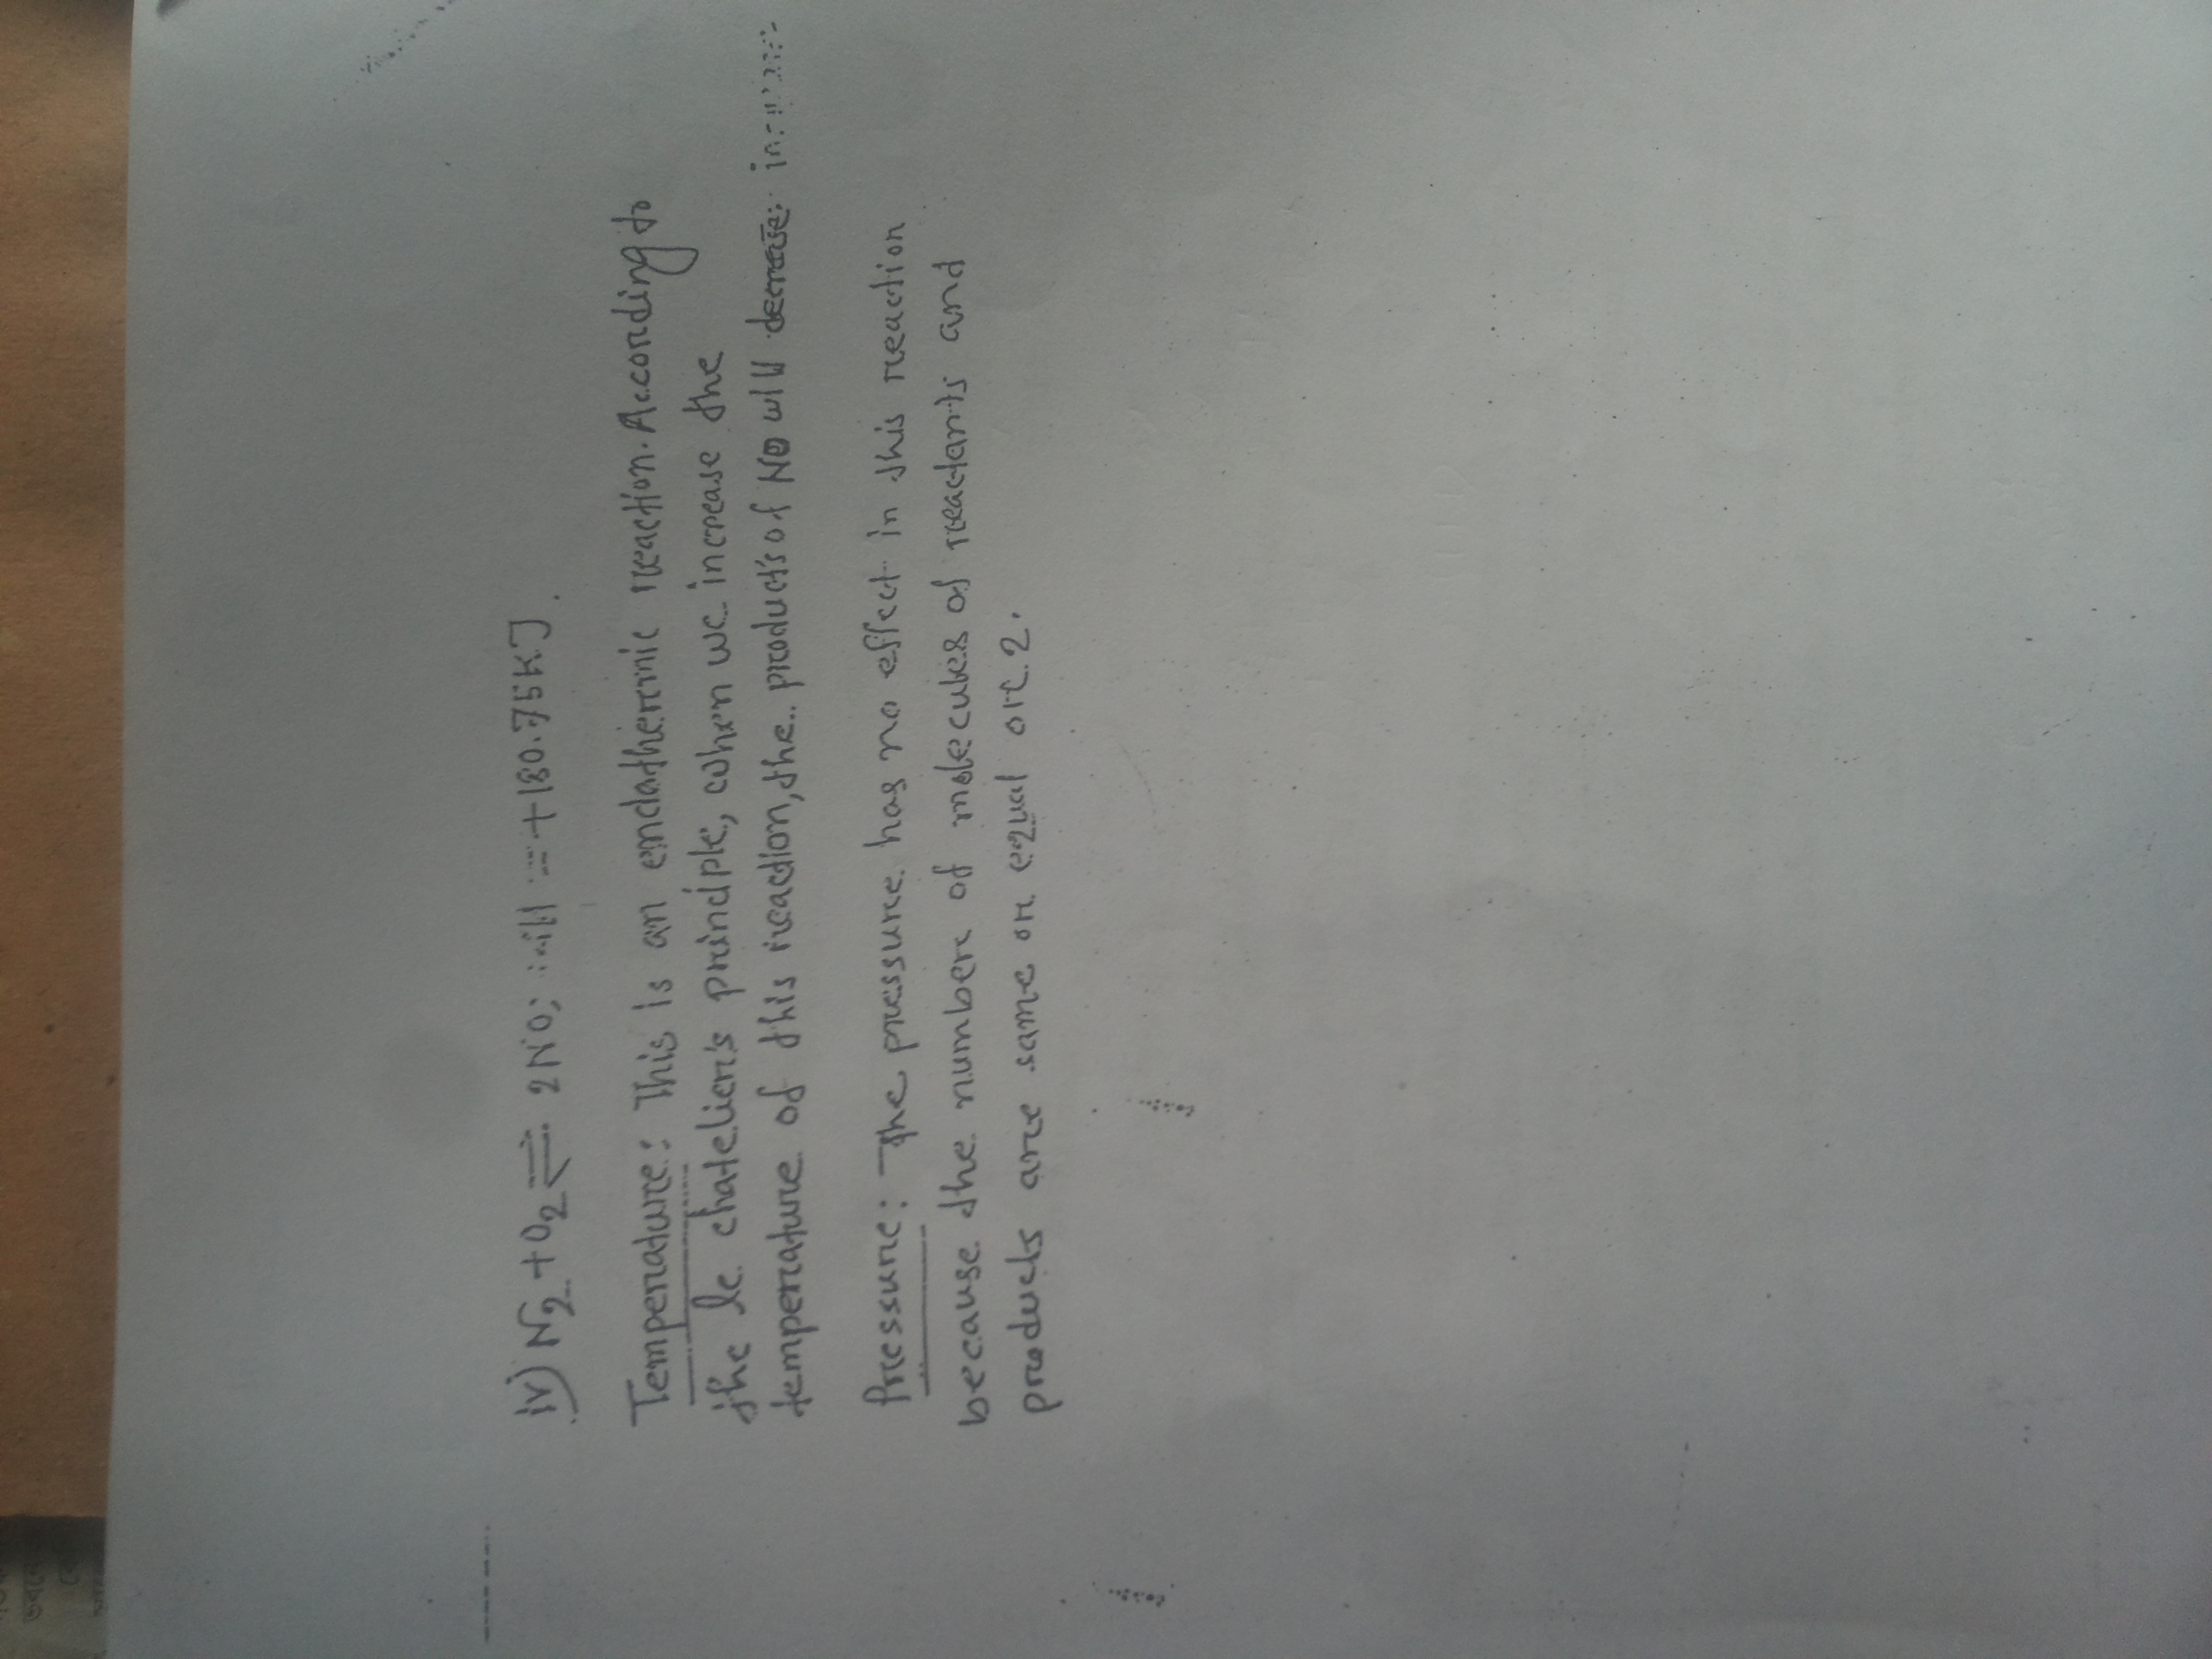 ভবনে
iv) N2 + O2 ⇌ 2NO; = +180.75KJ.
Temperature: This is an endothermic reaction. According to
the le chatelier's principle, when we increase the
temperature of this reaction, the products of NO will decrease
Pressure: The pressure has no effect in this reaction
because the number of molecules of reactants and
products are same or equal or 2.